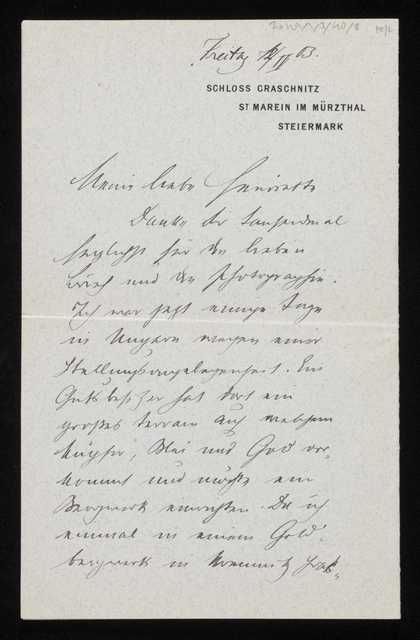 Freitag 12/VI 03.
SCHLOSS GRASCHNITZ
ST MAREIN IM MÜRZTHAL
STEIERMARK
Meine liebe Henriette
Danke dir tausendmal
herzlichst für den lieben
Brief und die Photographie.
Ich war jetzt einige Tage
in Ungarn wegen einer
Stellungsangelegenheit. Ein
Gutsbesitzer hat dort ein
großes Terrain auf welchem
Kupfer, Blei und Gold vor-
kommt und möchte ein
Bergwerk einrichten. Da ich
einmal in einem Gold-
bergwerk in Kremnitz